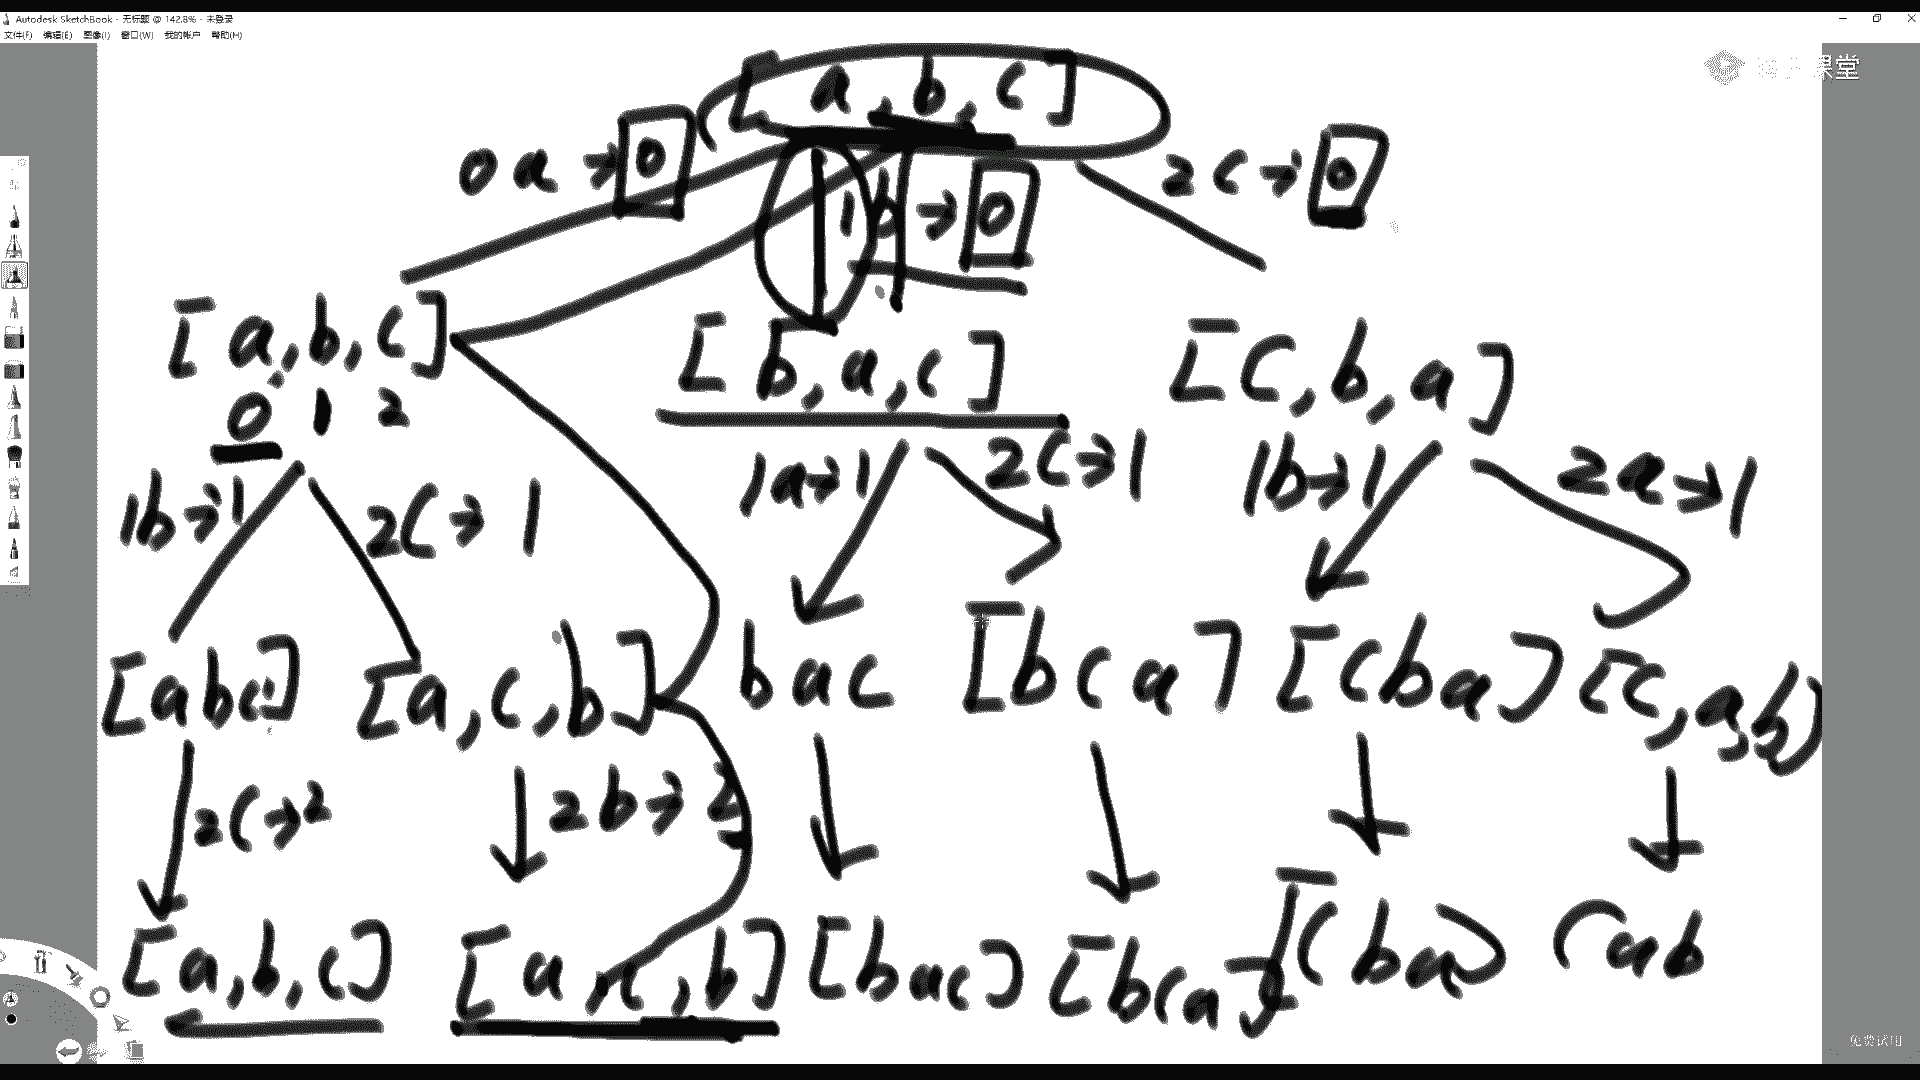 Autodesk SketchBook - 无标题 @ 142.8% - 未登录
文件(F) 编辑(E) 图像(I) 窗口(W) 我的帐户 帮助(H)
课堂
[ a , b , c ]
0 a → 0
1 b → 0
2 c → 0
[ a , b , c ]
[ b , a , c ]
[ c , b , a ]
0 1 2
1b→1
2c→1
1a→1
2c→1
1b→1
2a→1
[abc]
[a , c , b]
bac
[bca]
[cba]
[c , a , b]
2c→2
2b→2
[a , b , c]
[a , c , b]
[bac]
[bca]
[cba]
cab
免费试用